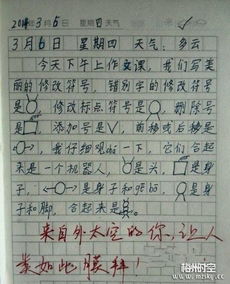 2014年3月6日 星期四 天气
3月6日 星期四 天气：多云
今天下午上作文课，我们写美
丽的修改符号，错别字的修改符
号是 ，修改标点符号是 ，删除号
是 ，添加号是V，前移或后移是
，我仔细观 一下，它们合起
来是一个机器人， 是头， 是身
子， 是身子和 ， 是身
子和脚，合起来是 。
来自外太空的你，让人
类如此膜拜！
梧州时空
www.mzsky.cc